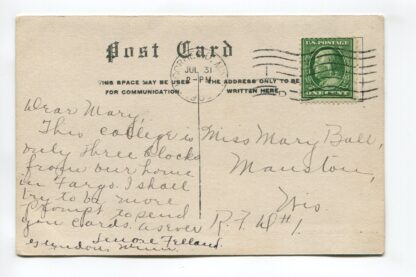 Post Card
THIS SPACE MAY BE USED
FOR COMMUNICATION.
THE ADDRESS ONLY TO BE
WRITTEN HERE.
JUL 31
2-PM
U.S. POSTAGE
ONE CENT
Dear Mary,
This college is
only three blocks
from our home
in Fargo. I shall
try to be more
prompt to send
you cards. as ever
Lenore Felland
Glyndon, Minn.
Miss Mary Ball,
Mauston,
Wis
R.F.D#1.